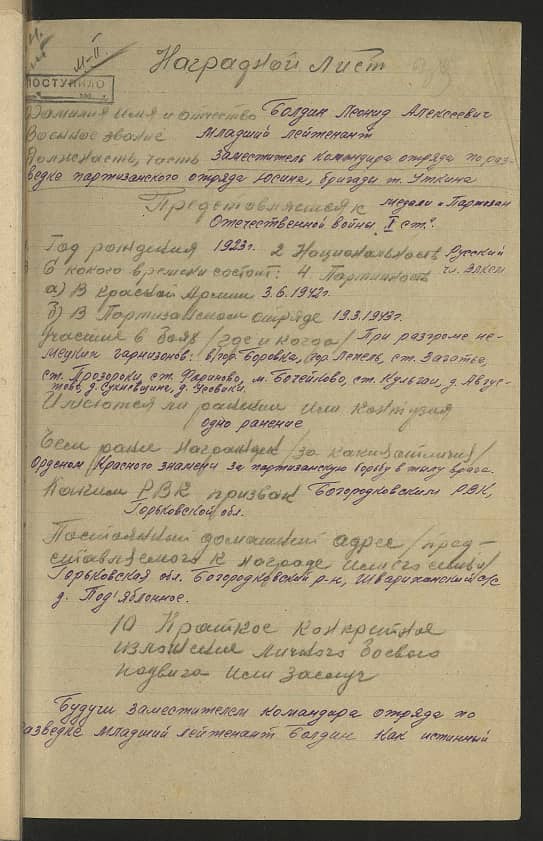 М-II.
ПОСТУПИЛО
Наградной лист
Фамилия имя и отчество Болдин Леонид Алексеевич
Военное звание Младший лейтенант
Должность, часть Заместитель командира отряда по раз-
ведке партизанского отряда Юсина, бригады т. Уткина
Представляется к медали "Партизан
Отечественной войны, I ст."
1 Год рождения 1923г. 2 Национальность Русский
3 С какого времени состоит: 4. Партийность чл. ВЛКСМ
а) В Красной Армии 3.6.1942г.
б) В Партизанском отряде 19.3.1943г.
Участие в боях /где и когда/ При разгроме не-
мецких гарнизонов: в/гор. Боровка, гор. Лепель, ст. Загатье,
ст. Прозороки, ст. Фариново, м. Бочейково, ст. Кульгаи, д. Авгус-
тово, д. Сукневщине, д. Усвейки.
Имеются ли ранения или контузия
одно ранение
Чем ранее награжден /за какие отличия/
Орденом "Красного знамени" за партизанскую борьбу в тылу врага.
Каким РВК призван Богородковским РВК,
Горьковской обл.
Постоянный домашний адрес /пред-
ставляемого к награде или его семьи/
Горьковская обл. Богородковский р-н, Шварихинский с/с
д. Под'яблонное.
10 Краткое конкретное
изложение личного боевого
подвига или заслуг
Будучи заместителем командира отряда по
разведке младший лейтенант Болдин как истинный